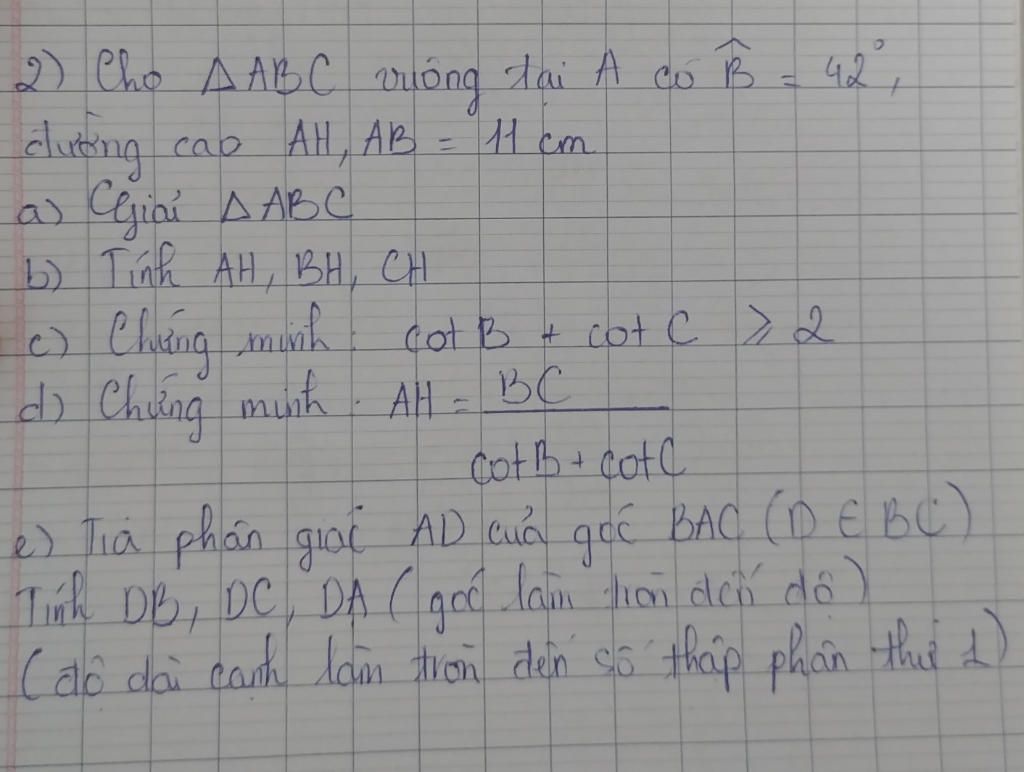 2) Cho ΔABC vuông tại A có B̂ = 42°,
đường cao AH, AB = 11 cm
a) Giải ΔABC
b) Tính AH, BH, CH
c) Chứng minh: cot B + cot C ≥ 2
d) Chứng minh: AH = BC / (cotB + cotC)
e) Tia phân giác AD của góc BAC (D ∈ BC)
Tính DB, DC, DA (góc làm tròn đến độ)
(độ dài cạnh làm tròn đến số thập phân thứ 1)